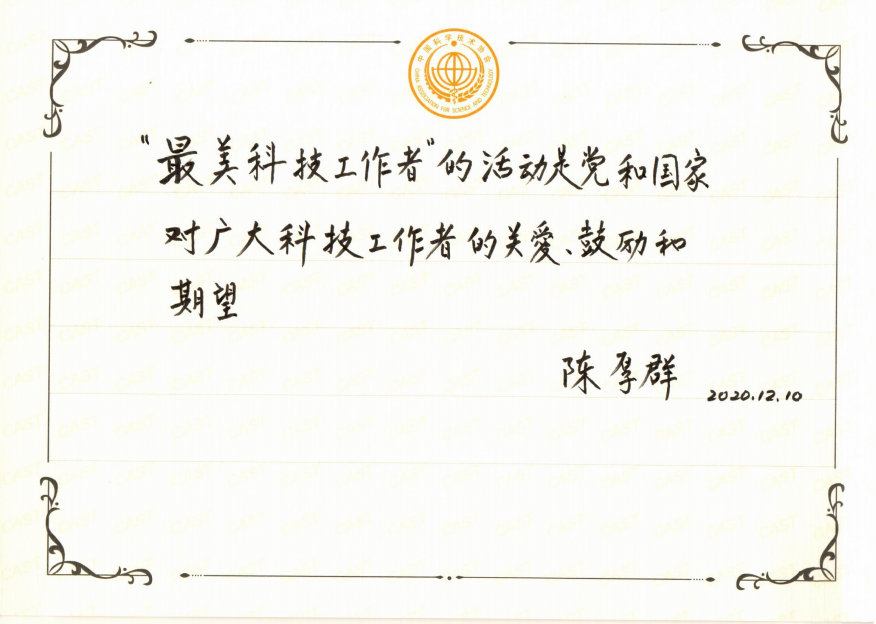 中国科学技术协会
CHINA ASSOCIATION FOR SCIENCE AND TECHNOLOGY
“最美科技工作者”的活动是党和国家
对广大科技工作者的关愛、鼓励和
期望
陈厚群
2020.12.10